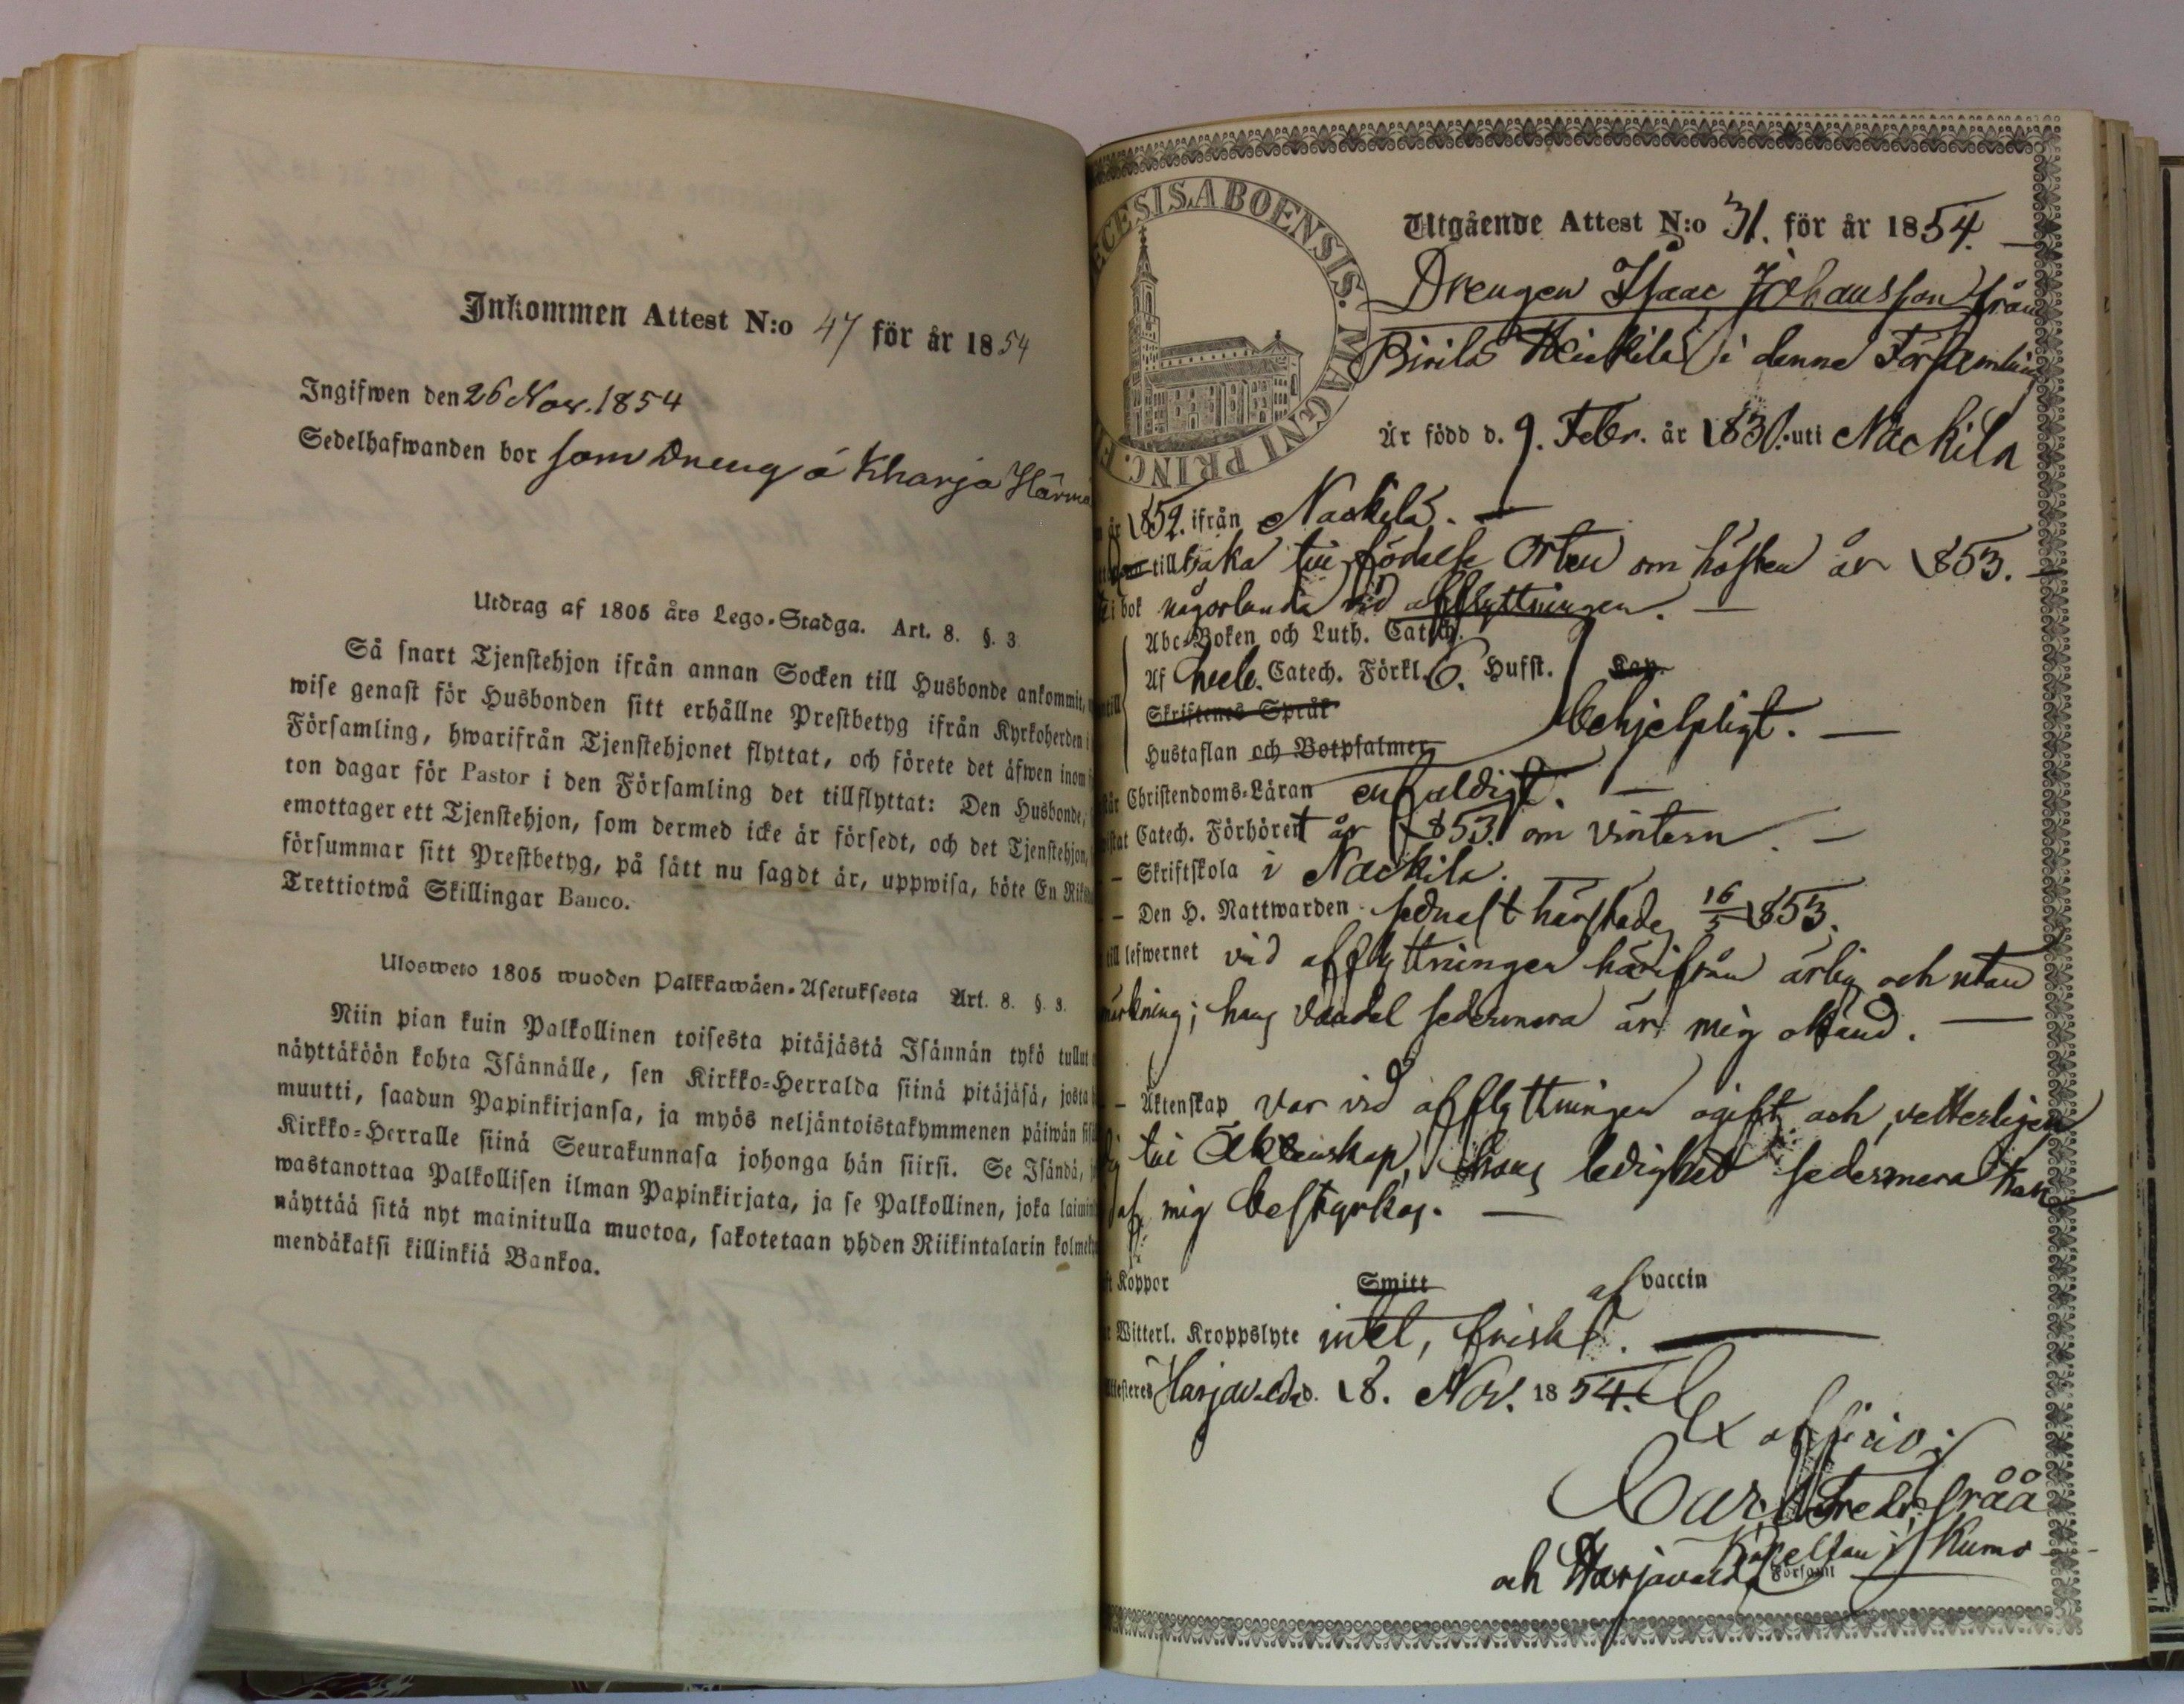 Inkommen Attest N:o 47 för år 1854
Ingifwen den 26 Nov. 1854
Sedelhafwanden bor som Dreng å Kharja Härmä
Utdrag af 1805 års Lego-Stadga. Art. 8. §. 3.
Så snart Tjenstehjon ifrån annan Socken till Husbonde ankommit,
wise genast för Husbonden sitt erhållne Prestbetyg ifrån Kyrkoherden i
Församling, hwarifrån Tjenstehjonet flyttat, och förete det äfwen inom
ton dagar för Pastor i den Församling det tillflyttat: Den Husbonde,
emottager ett Tjenstehjon, som dermed icke är försedt, och det Tjenstehjon,
försummar sitt Prestbetyg, på sätt nu sagdt är, uppwisa, böte En Riks
Trettiotwå Skillingar Banco.
Ulosweto 1805 wuoden Palkkawäen-Asetuksesta Art. 8. §. 3.
Niin pian kuin Palkollinen toisesta pitäjästä Isännän tykö tullut
näyttäköön kohta Isännälle, sen Kirkko-Herralda siinä pitäjäsä, josta
muutti, saadun Papinkirjansa, ja myös neljäntoistakymmenen päiwän
Kirkko-Herralle siinä Seurakunnasa johonga hän siirsi. Se Isändä,
wastanottaa Palkollisen ilman Papinkirjata, ja se Palkollinen, joka
näyttää sitä nyt mainitulla muotoa, sakotetaan yhden Riikintalarin
mendäkaksi killinkiä Bankoa.
ECESIS. ABOENSIS. MAGNI PRINC. F
Utgående Attest N:o 31. för år 1854.
Drengen Isaac Johansson från
Pirilä Heickilä i denna Församling
Är född d. 9. Febr. år 1830. uti Nackila
år 1852. ifrån Nackila.
tillbaka till födelse Orten om hösten år 1853.
i bok någorlunda vid afflyttningen.
Abc-Boken och Luth. Catech.
Af hela. Catech. Förkl. 6. Husst. Kap.
Skriftenes Språk
behjelpligt.
Hustaflan och Botpsalmer
Christendoms-Läran enfaldigt.
Catech. Förhöret år 1853. om vintern.
– Skriftskola i Nackila.
– Den H. Nattwarden sednast härstädes 16/5 1853.
till lefwernet vid afflyttningen härifrån ärlig och utan
märkning; hans vandel sedermera är mig okänd.
– Äktenskap var vid afflyttningen ogift och vetterligen
till Äktenskap, hans ledighet sedermera kan
af mig bestyrkas.
Koppor Smitt af vaccin
Witterl. Kroppslyte intet, friskt.
Attesteres Harjavalda d. 18. Nov. 1854.
Ex officio
Carl Fredr. Fråå
Kapellan i Kumo
och Harjavalda Församl